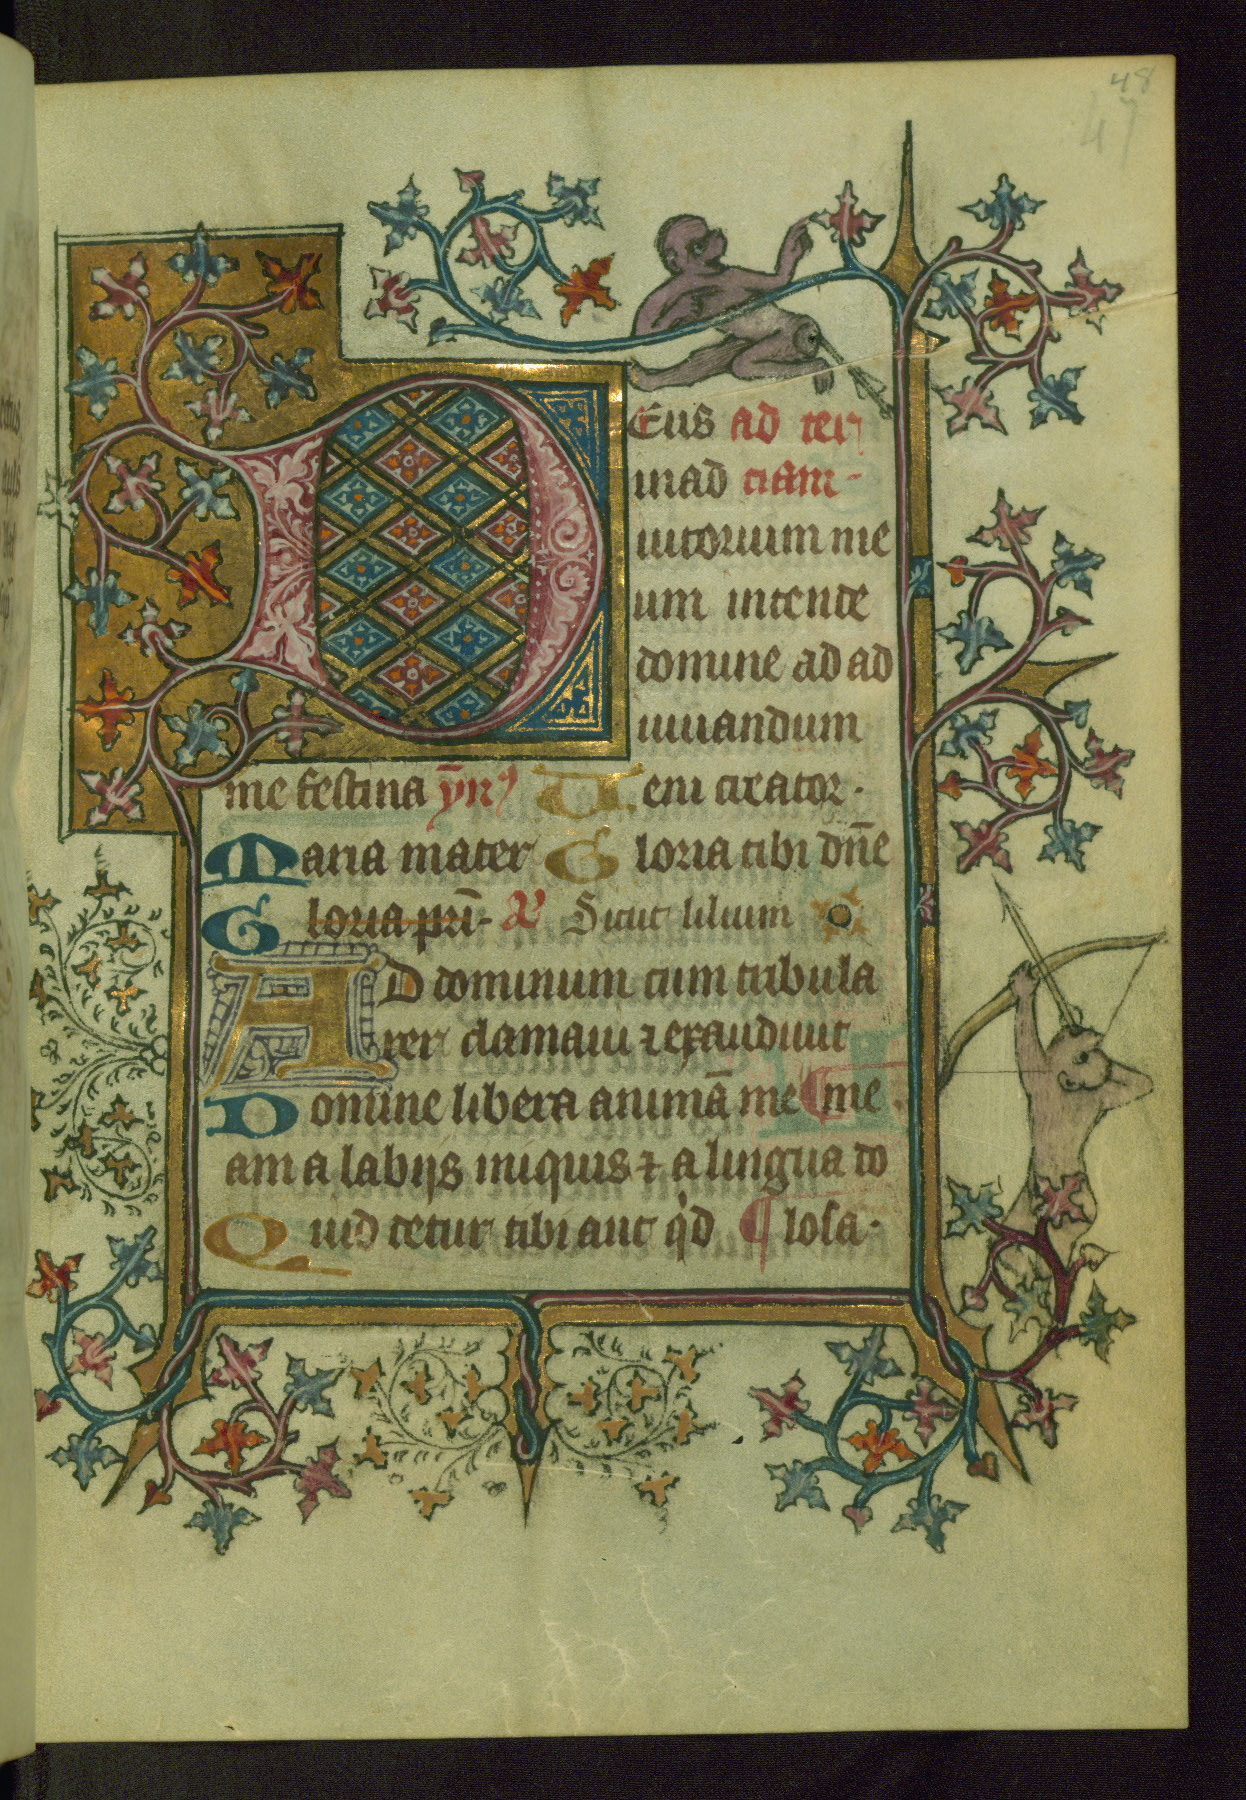 48
47
Eus ad ter
iuad ciam
iutorium me
um intende
domine ad ad
iuuandum
me festina ȳn⁹ Ueni creator.
Maria mater Gloria tibi dn̄e
Gloria pri̅. Sicut lilium
AD dominum cum tribula
rer clamaui ⁊ exaudiuit
Domine libera animā me ¶ me.
am a labijs iniquis ⁊ a lingua do
Quid detur tibi aut qͥd ¶ losa.